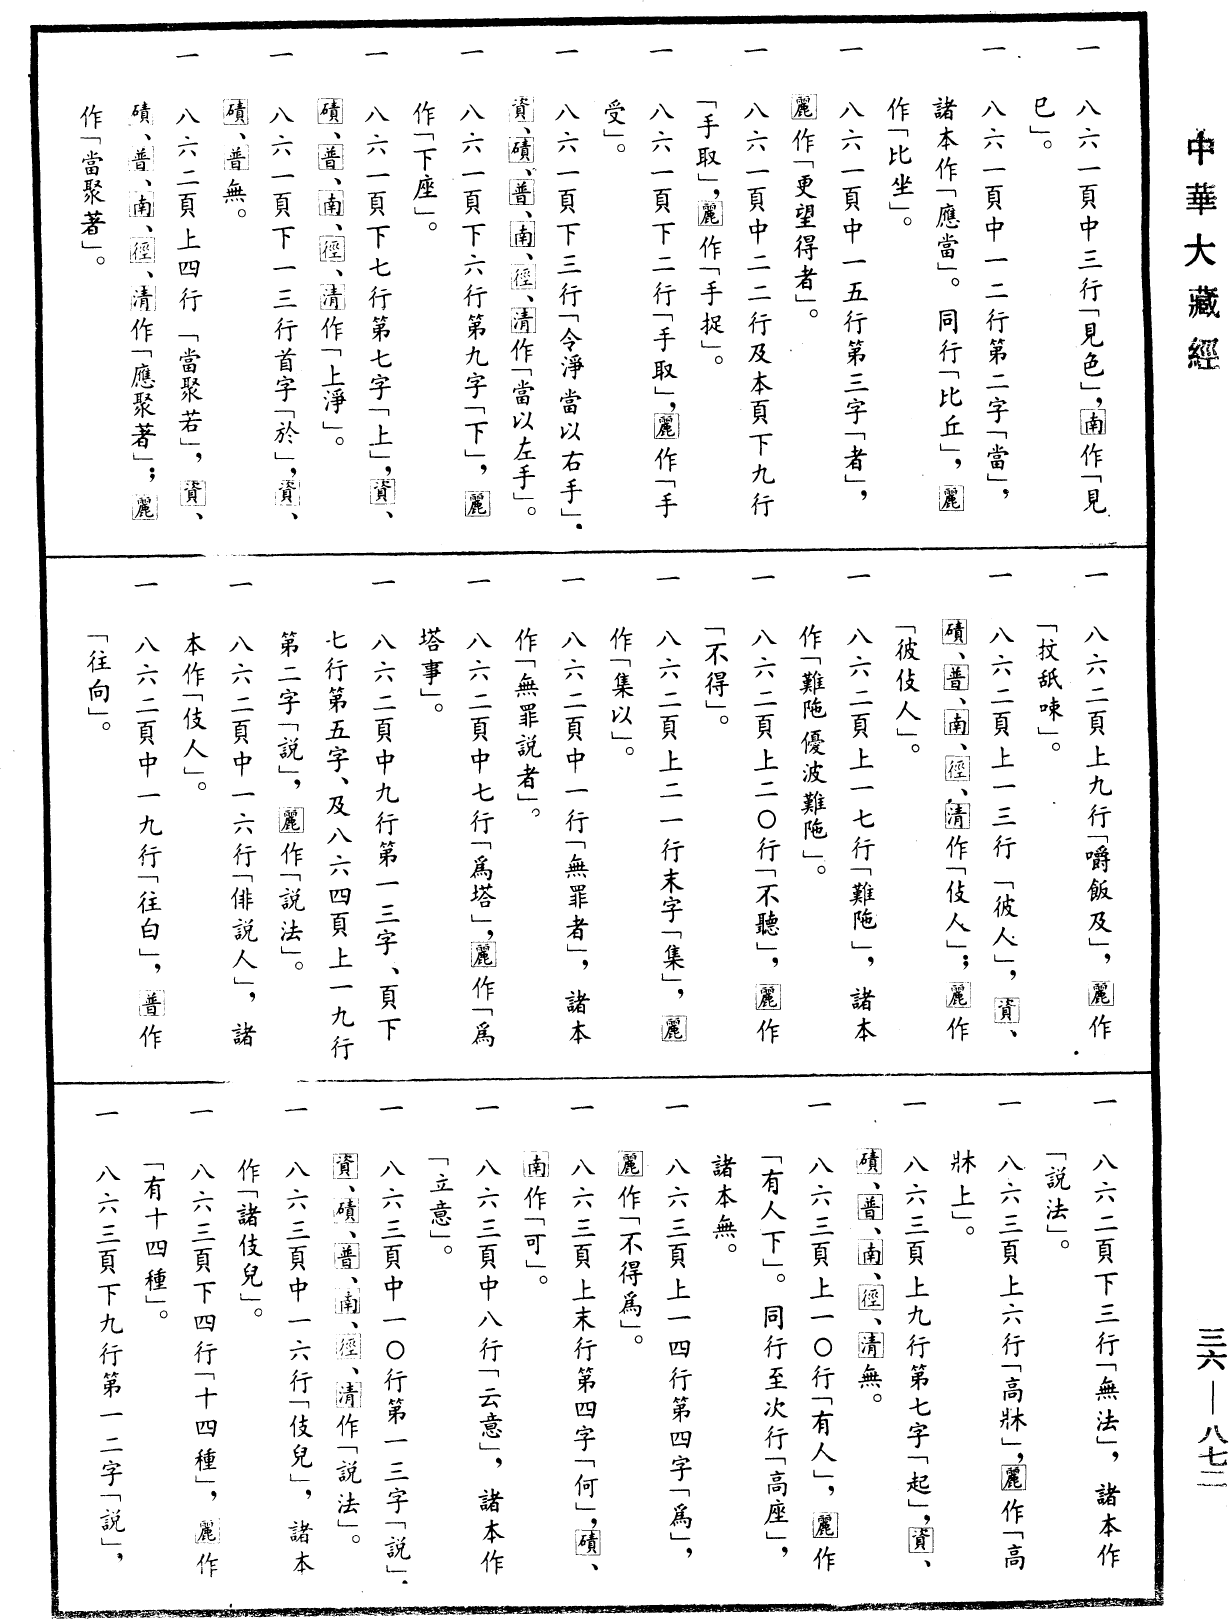 中華大藏經
三六—八七二
一　八六一頁中三行「見色」，南作「見
巳」。
一　八六一頁中一二行第二字「當」，
諸本作「應當」。同行「比丘」，麗
作「比坐」。
一　八六一頁中一五行第三字「者」，
麗作「更望得者」。
一　八六一頁中二二行及本頁下九行
「手取」，麗作「手捉」。
一　八六一頁下二行「手取」，麗作「手
受」。
一　八六一頁下三行「令淨當以右手」，
資、磧、普、南、徑、清作「當以左手」。
一　八六一頁下六行第九字「下」，麗
作「下座」。
一　八六一頁下七行第七字「上」，資、
磧、普、南、徑、清作「上淨」。
一　八六一頁下一三行首字「於」，資、
磧、普無。
一　八六二頁上四行「當聚若」，資、
磧、普、南、徑、清作「應聚著」；麗
作「當聚著」。
一　八六二頁上九行「嚼飯及」，麗作
「抆舐㖨」。
一　八六二頁上一三行「彼人」，資、
磧、普、南、徑、清作「伎人」；麗作
「彼伎人」。
一　八六二頁上一七行「難陁」，諸本
作「難陁優波難陁」。
一　八六二頁上二〇行「不聽」，麗作
「不得」。
一　八六二頁上二一行末字「集」，麗
作「集以」。
一　八六二頁中一行「無罪者」，諸本
作「無罪説者」。
一　八六二頁中七行「爲塔」，麗作「爲
塔事」。
一　八六二頁中九行第一三字、頁下
七行第五字、及八六四頁上一九行
第二字「説」，麗作「説法」。
一　八六二頁中一六行「俳説人」，諸
本作「伎人」。
一　八六二頁中一九行「往白」，普作
「往向」。
一　八六二頁下三行「無法」，諸本作
「説法」。
一　八六三頁上六行「高牀」，麗作「高
牀上」。
一　八六三頁上九行第七字「起」，資、
磧、普、南、徑、清無。
一　八六三頁上一〇行「有人」，麗作
「有人下」。同行至次行「高座」，
諸本無。
一　八六三頁上一四行第四字「爲」，
麗作「不得爲」。
一　八六三頁上末行第四字「何」，磧、
南作「可」。
一　八六三頁中八行「云意」，諸本作
「立意」。
一　八六三頁中一〇行第一三字「説」，
資、磧、普、南、徑、清作「説法」。
一　八六三頁中一六行「伎兒」，諸本
作「諸伎兒」。
一　八六三頁下四行「十四種」，麗作
「有十四種」。
一　八六三頁下九行第一二字「説」，